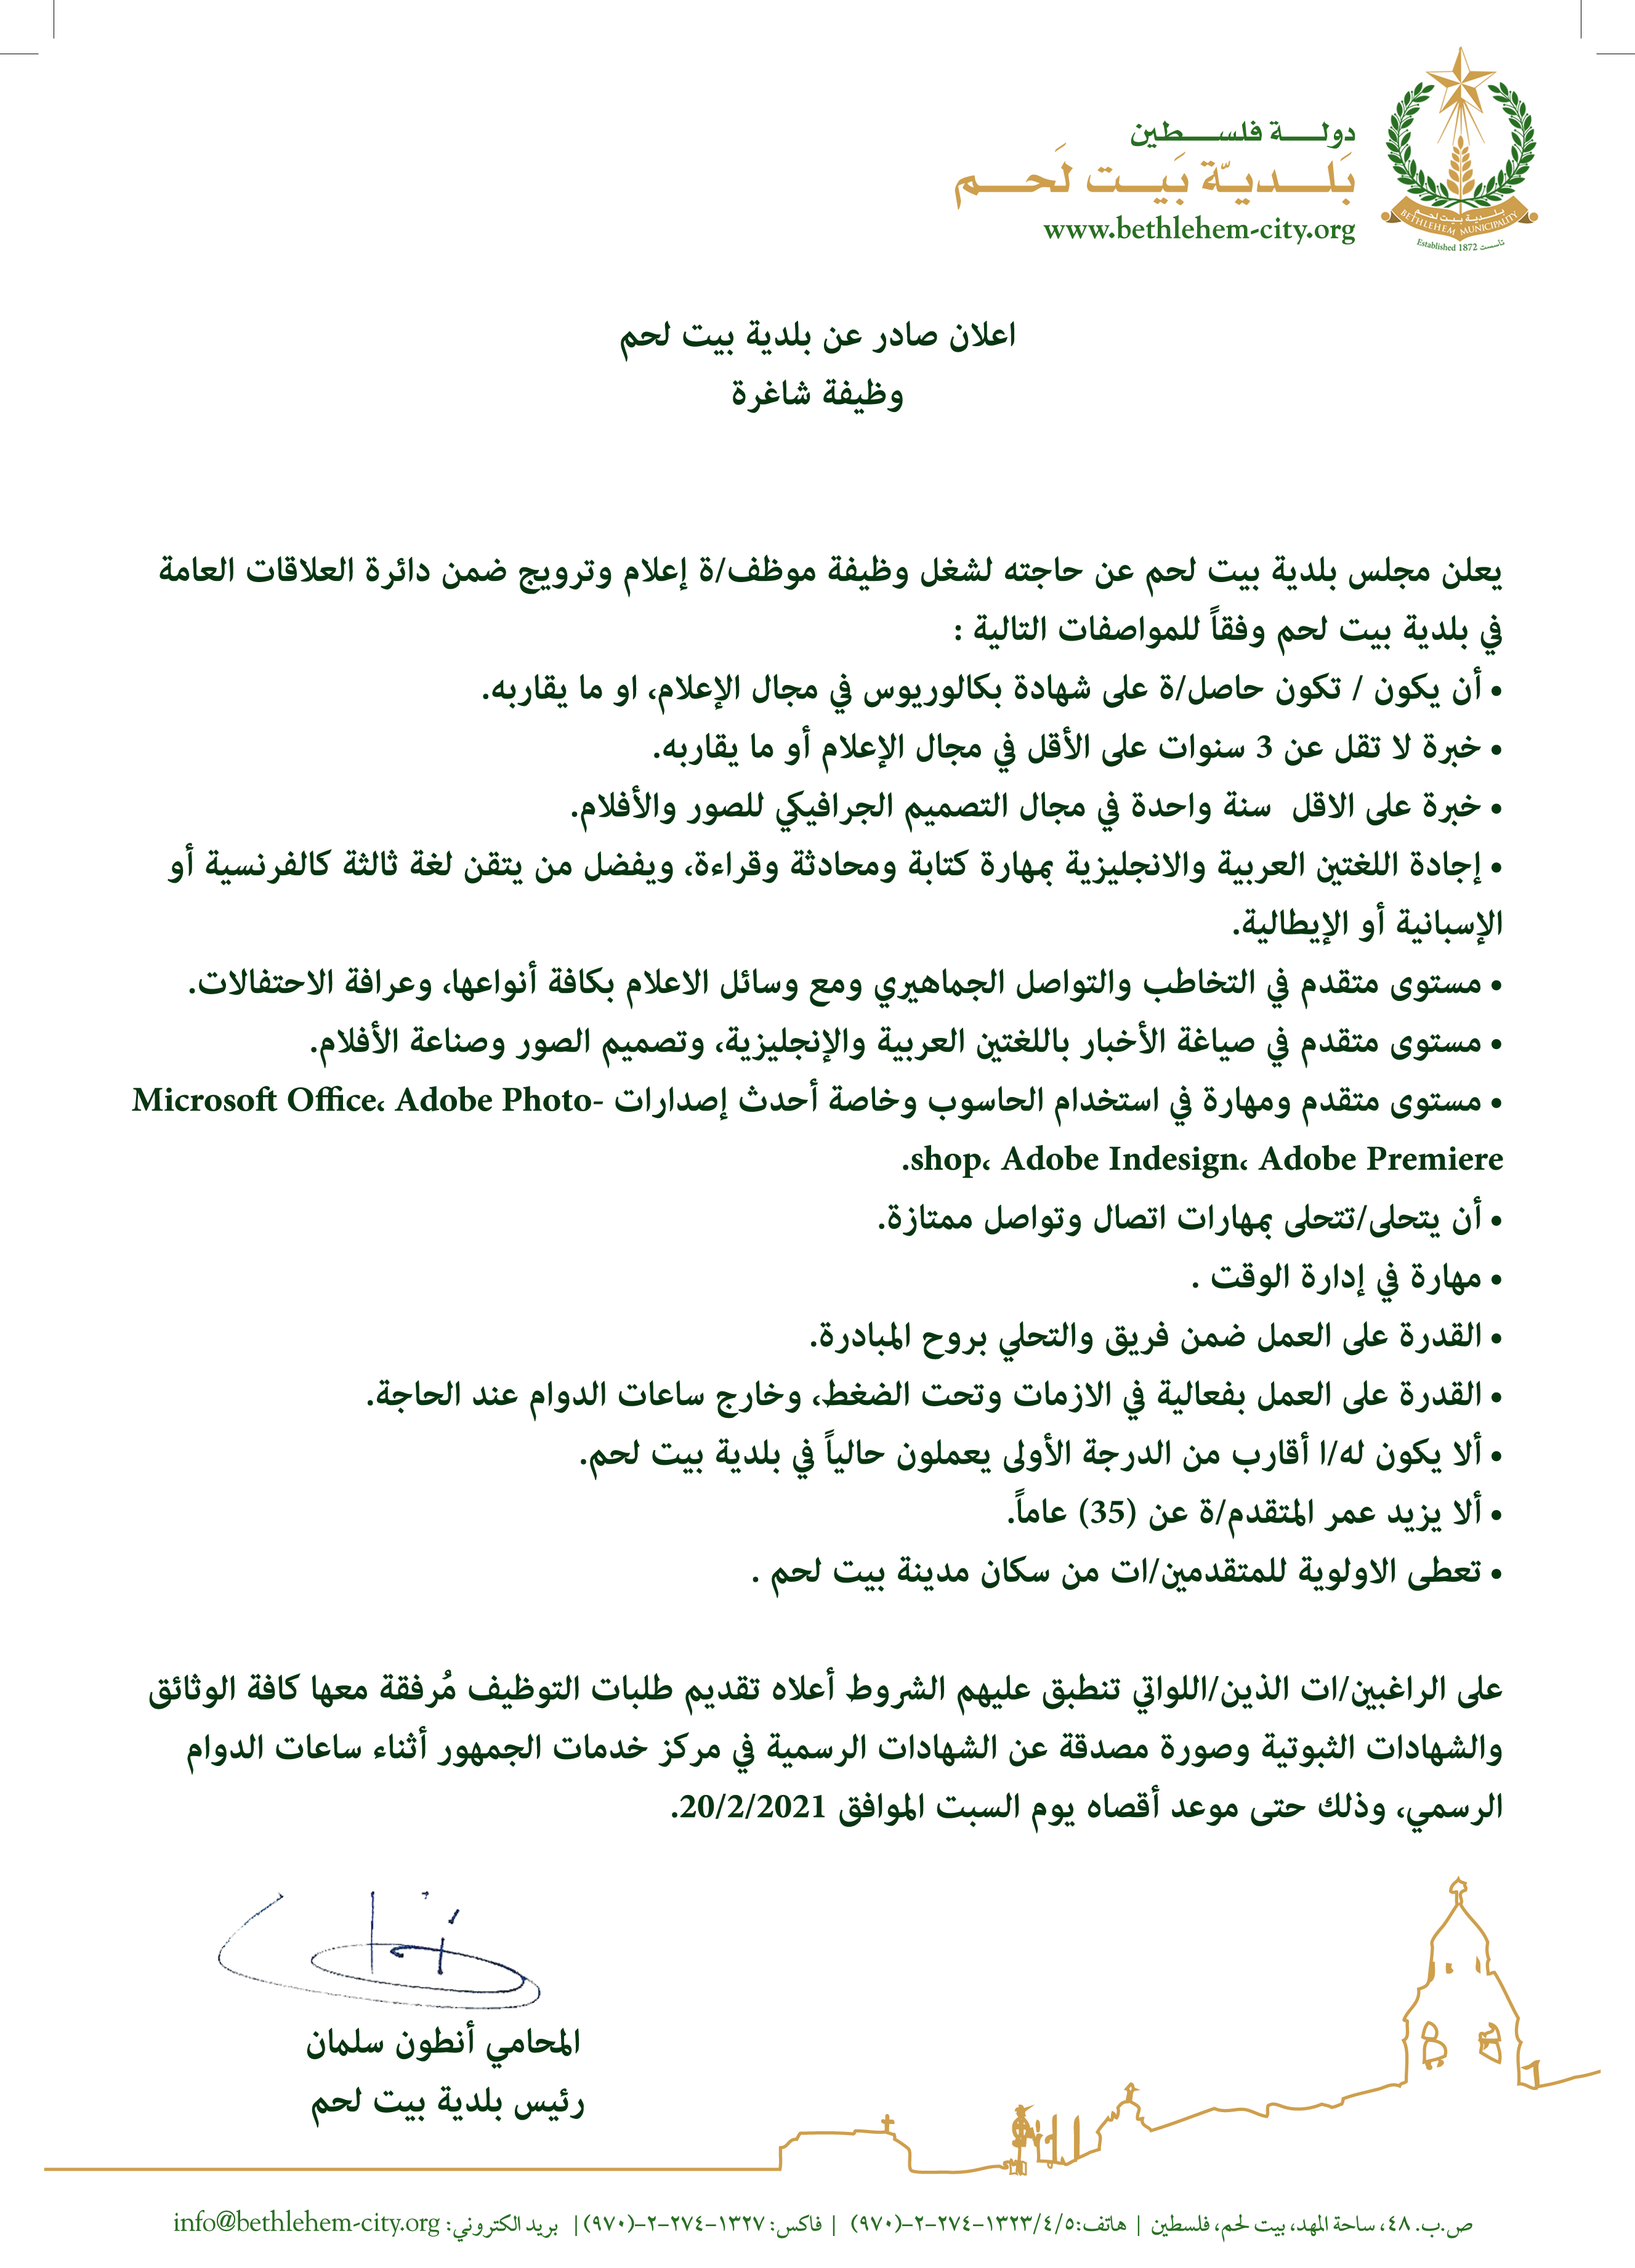 دولة فلسطين
بَلديّة بَيت لَحم
www.bethlehem-city.org
بلدية بيت لحم
BETHLEHEM MUNICIPALITY
Established 1872 تأسست
اعلان صادر عن بلدية بيت لحم
وظيفة شاغرة
يعلن مجلس بلدية بيت لحم عن حاجته لشغل وظيفة موظف/ة إعلام وترويج ضمن دائرة العلاقات العامة
في بلدية بيت لحم وفقاً للمواصفات التالية :
• أن يكون / تكون حاصل/ة على شهادة بكالوريوس في مجال الإعلام، او ما يقاربه.
• خبرة لا تقل عن 3 سنوات على الأقل في مجال الإعلام أو ما يقاربه.
• خبرة على الاقل سنة واحدة في مجال التصميم الجرافيكي للصور والأفلام.
• إجادة اللغتين العربية والانجليزية بمهارة كتابة ومحادثة وقراءة، ويفضل من يتقن لغة ثالثة كالفرنسية أو
الإسبانية أو الإيطالية.
• مستوى متقدم في التخاطب والتواصل الجماهيري ومع وسائل الاعلام بكافة أنواعها، وعرافة الاحتفالات.
• مستوى متقدم في صياغة الأخبار باللغتين العربية والإنجليزية، وتصميم الصور وصناعة الأفلام.
• مستوى متقدم ومهارة في استخدام الحاسوب وخاصة أحدث إصدارات Microsoft Office، Adobe Photo-
shop، Adobe Indesign، Adobe Premiere.
• أن يتحلى/تتحلى بمهارات اتصال وتواصل ممتازة.
• مهارة في إدارة الوقت .
• القدرة على العمل ضمن فريق والتحلي بروح المبادرة.
• القدرة على العمل بفعالية في الازمات وتحت الضغط، وخارج ساعات الدوام عند الحاجة.
• ألا يكون له/ا أقارب من الدرجة الأولى يعملون حالياً في بلدية بيت لحم.
• ألا يزيد عمر المتقدم/ة عن (35) عاماً.
• تعطى الاولوية للمتقدمين/ات من سكان مدينة بيت لحم .
على الراغبين/ات الذين/اللواتي تنطبق عليهم الشروط أعلاه تقديم طلبات التوظيف مُرفقة معها كافة الوثائق
والشهادات الثبوتية وصورة مصدقة عن الشهادات الرسمية في مركز خدمات الجمهور أثناء ساعات الدوام
الرسمي، وذلك حتى موعد أقصاه يوم السبت الموافق 20/2/2021.
المحامي أنطون سلمان
رئيس بلدية بيت لحم
ص.ب. ٤٨، ساحة المهد، بيت لحم، فلسطين | هاتف: ٥/٤/١٣٢٣-٢٧٤-٢-(٩٧٠) | فاكس: ١٣٢٧-٢٧٤-٢-(٩٧٠) | بريد الكتروني: info@bethlehem-city.org